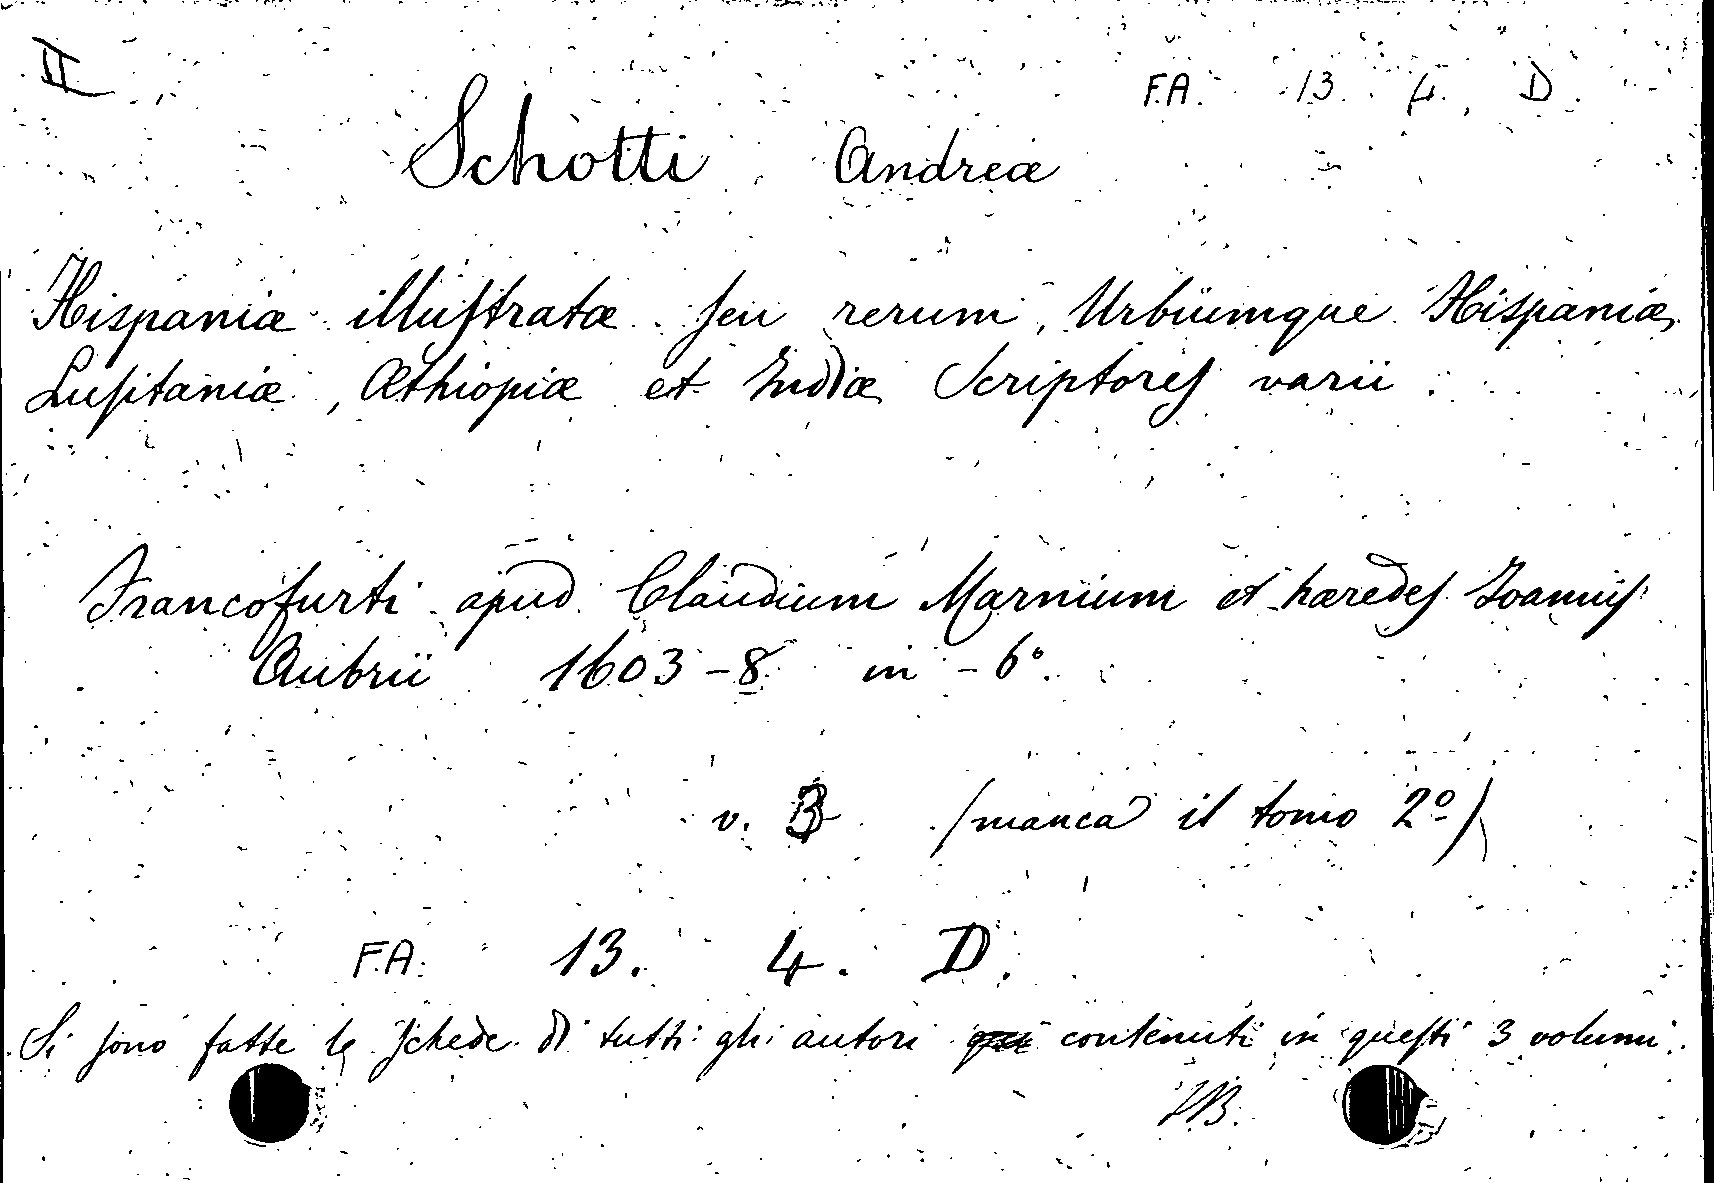 II
F.A. 13. 4. D.
Schotti Andreæ
Hispaniæ illuſtratæ ſeu rerum, Urbiumque Hispaniæ,
Luſitaniæ, Æthiopiæ et Indiæ Scriptoreſ varii.
Francofurti apud Claudium Marnium et hæredeſ Ioanniſ
Aubrii 1603-8 in-6°.
v. 3 (manca il tomo 2º)
F.A. 13. 4. D.
Si ſono fatte le ſchede di tutti gli autori contenuti in queſti 3 volumi.